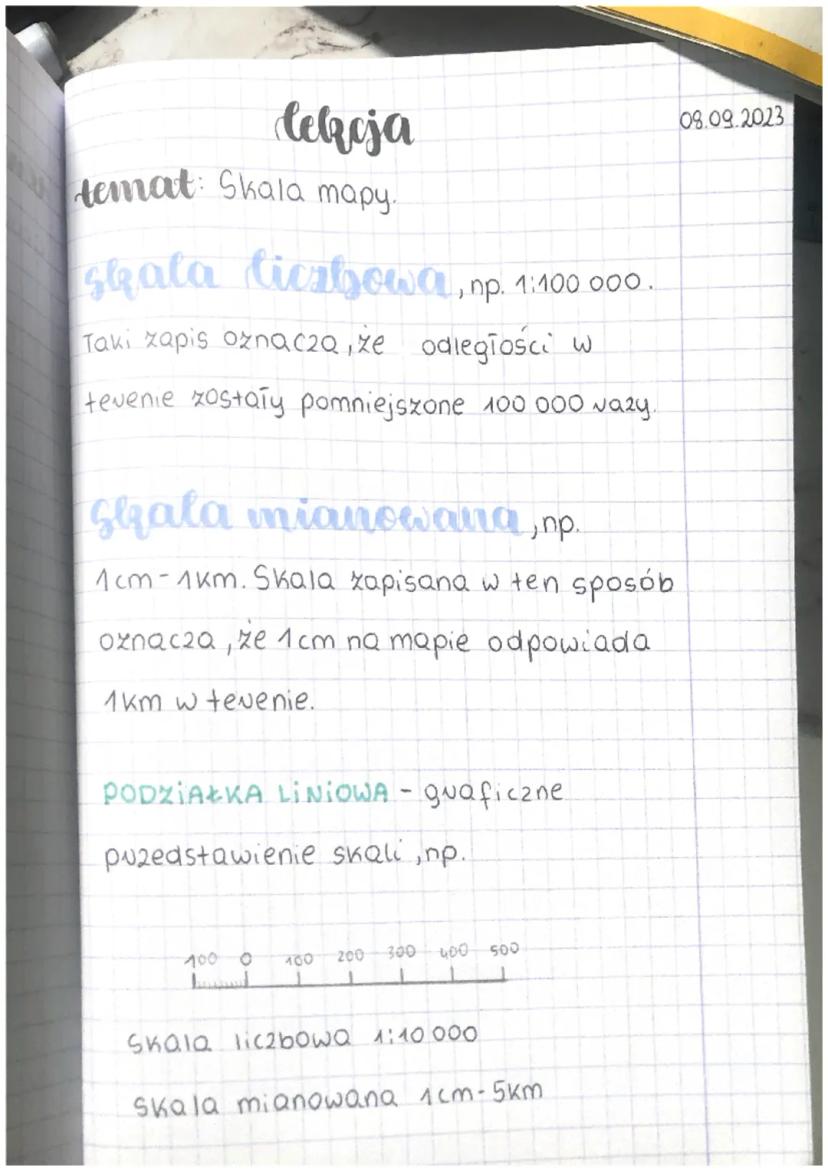 lekcja
08.09.2023
temat: Skala mapy.
skala liczbowa, np. 1:100 000.
Taki zapis oznacza, że odległości w
terenie zostały pomniejszone 100 000 razy.
Skala mianowana, np.
1cm-1km. Skala zapisana w ten sposób
oznacza, że 1cm na mapie odpowiada
1km w terenie.
PODZIAŁKA LINIOWA - graficzne
przedstawienie skali, np.
100 0 100 200 300 400 500
Skala liczbowa 1:10 000
Skala mianowana 1cm-5km